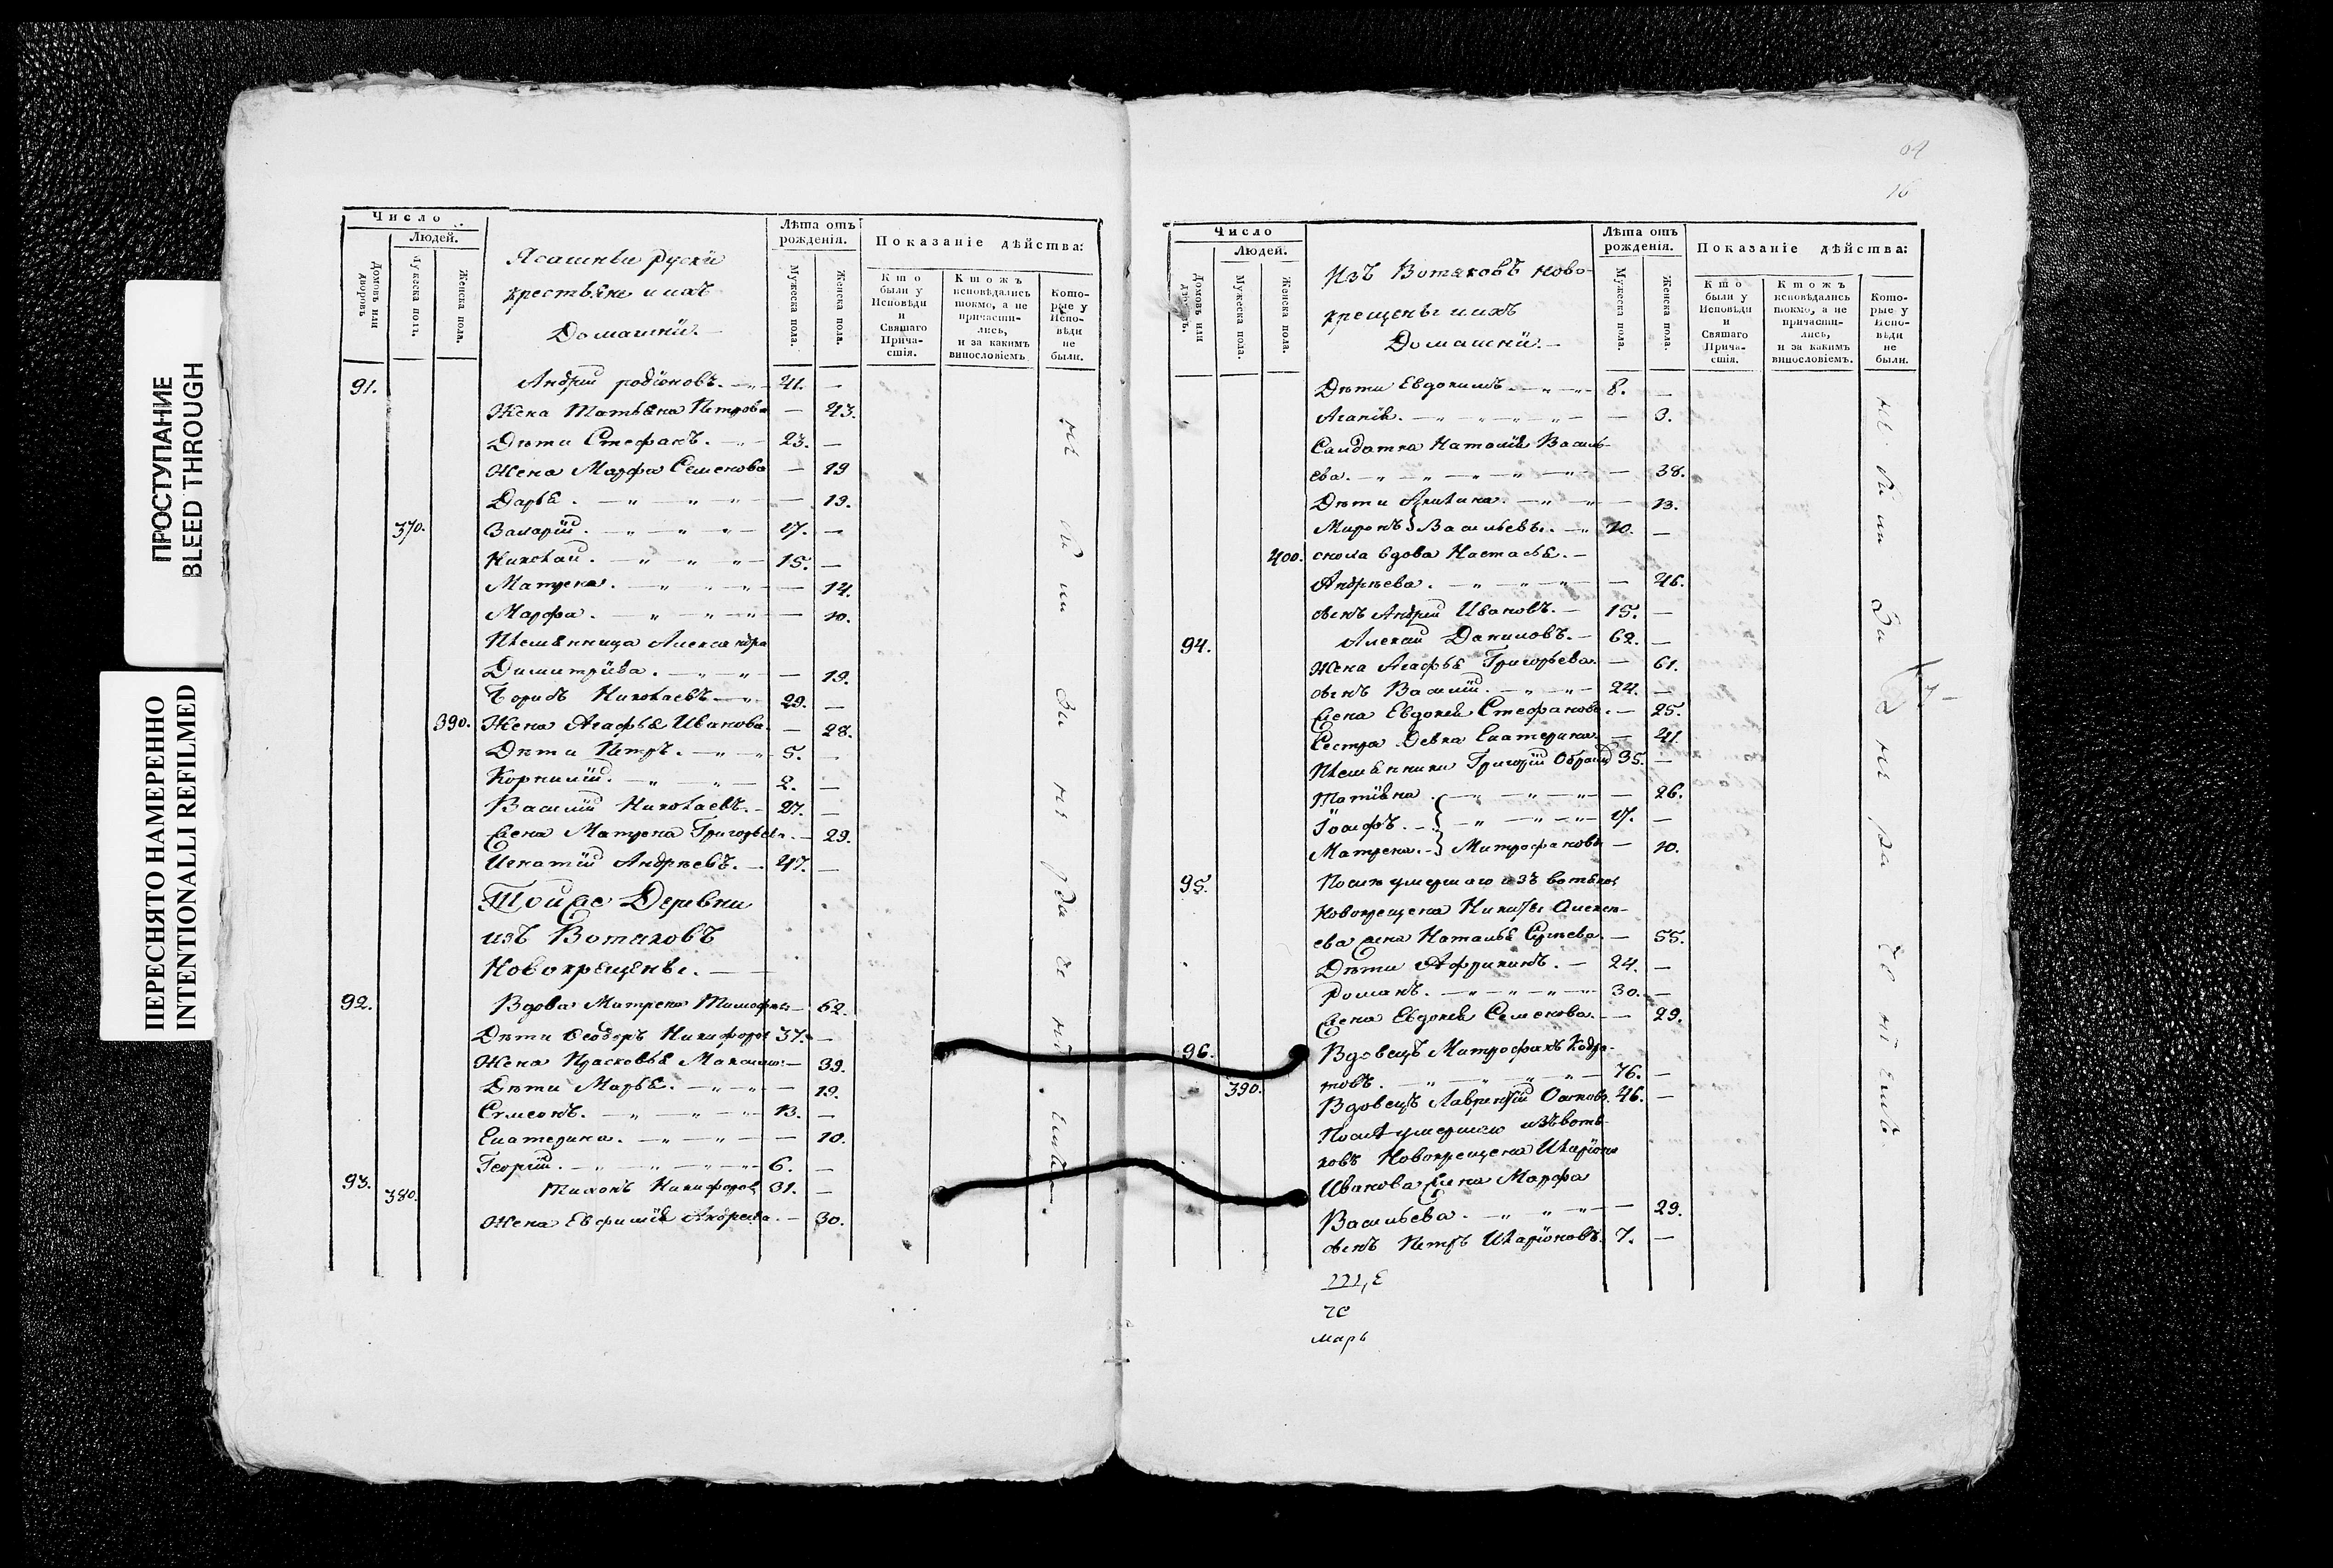 ПРОСТУПАНИЕ
BLEED THROUGH
ПЕРЕСНЯТО НАМЕРЕННО
INTENTIONALLI REFILMED
Число
Людей.
Домовъ или дворовъ
Мужеска полъ.
Женска пола.
Ясашныи руски
крестьяне и ихъ
Домашнїи.
Лѣта отъ рожденія.
Мужеска пола.
Женска пола.
Показаніе дѣйства:
Кто были у Исповѣди и Святаго Причастія.
Ктожъ исповѣдались токмо, а не причастились, и за какимъ винословіемъ
Которые у Исповѣди не были.
91. Андрей родїоновъ. 41. —
Жена Татьяна Петрова — 43.
Дѣти Стефанъ. 23. —
Жена Марфа Семенова — 19
Дарья. — 19.
370. Валерїй. 17. —
Николай. 15. —
Матрена. — 14.
Марфа. — 10.
Племянница Александра
Димитрїева. — 19.
Борисъ Николаевъ 29. —
390. Жена Агафья Иванова. — 28.
Дѣти Петръ. 5. —
Корнилїй. 2. —
Василїй Николаевъ. 27. —
Жена Матрена Григорьева. — 29.
Игнатїй Андрѣевъ. 47. —
Той же Деревни
изъ Вотяковъ
Новокрещены.
92. Вдова Матрена Тимофѣева — 62.
Дѣти Ѳеодоръ Никифоров 37. —
Жена Прасковья Максимо: — 39.
Дѣти Марья. — 19.
Семенъ. 13. —
Екатерина. — 10.
Георгїй. 6. —
93. 380. Тихонъ Никифоров 31. —
Жена Евфимїя Андреева. — 30.
16
Число
Людей.
Домовъ или дворовъ.
Мужеска пола.
Женска пола.
Изъ Вотяковъ ново-
крещены и ихъ
Домашнїи.
Лѣта отъ рожденія.
Мужеска пола.
Женска пола.
Показаніе дѣйства:
Кто были у Исповѣди и Святаго Причастія.
Ктожъ исповѣдались токмо, а не причастились, и за какимъ винословіемъ.
Которые у Исповѣди не были.
Дѣти Евдокимъ 8. —
Агапїя. — 3.
Салдатка Наталїя Василь-
ева. — 38.
Дѣти — 13.
Миронъ Васильевы. 10. —
400. вдова Настасья.
Андрѣева. — 46.
сынъ Андрей Ивановъ. 15. —
94. Алексѣй Даниловъ. 62. —
Жена Агафья Григорьева. — 61.
сынъ Василїй. 24. —
Жена Евдокея Стефанова. — 25.
Сестра Девка Екатерина. — 41.
Племянники Григорїй 35. —
Татїяна — 26.
Їосифъ. 17. —
Матрена. Митрофановы — 10.
95. Послѣ умершаго изъ вотяков
Новокрещена Никиты Алексѣ-
ева жена Наталья Сергѣева. — 55.
Дѣти Африканъ. 24. —
Романъ. 30. —
Жена Евдокея Семенова. — 29.
96. Вдовецъ Митрофанъ Кодра-
товъ. 76. —
390. Вдовецъ Лаврентїй Осипов. 46. —
Послѣ умершаго изъ вотя-
ковъ Новокрещена Иларїона
Иванова жена Марфа
Васильева. — 29.
сынъ Петръ Иларїоновъ. 7. —
марь